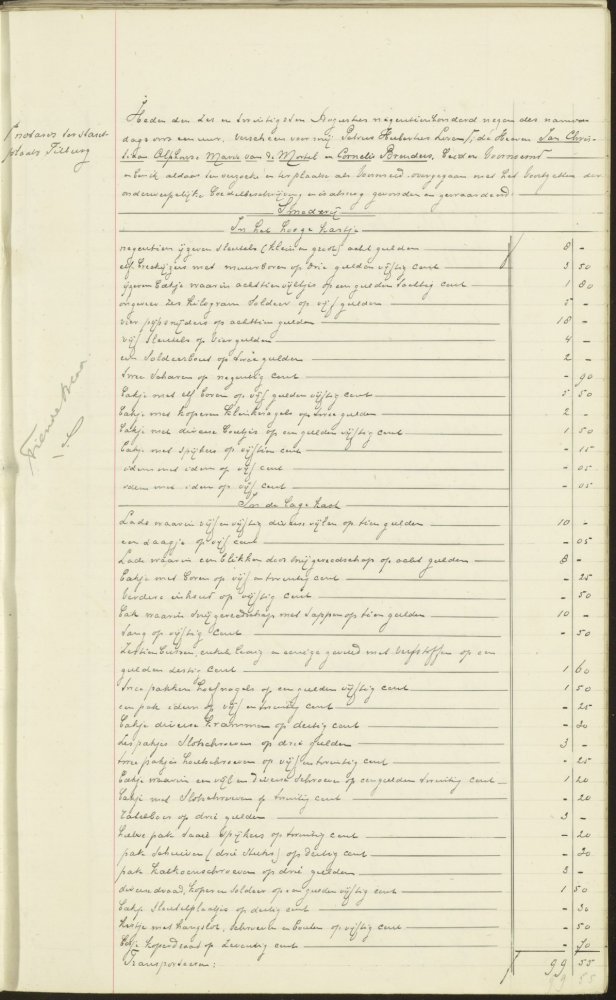 notaris ter stand-
plaats Tilburg
Heden den zes en twintigsten Augustus negentienhonderd negen des namid-
dags ons een uur, verscheen voor mij Petrus Hubertus Loven de Heeren Jan Chris-
tiaan Alphons Marie van de Mortel en Cornelis Brenders, beiden voornoemd
en ben ik aldaar ten verzoeke en ter plaatse als voormeld overgegaan met het voortzetten der
onderwerpelijke boedelbeschrijving en is alsnog gevonden en gewaardeerd
Smederij
In het hooge kastje
negentien ijzeren sleutels (klein en groot) acht gulden 8 -
elf met muurboren op drie gulden vijftig cent 3 50
ijzeren bakje waarin achttien vijltjes op een gulden tachtig cent 1 80
ongeveer zes kilogram soldeer op vijf gulden 5 -
vier pijpsnijders op achttien gulden 18 -
vijf sleutels op vier gulden 4 -
een soldeerbout op twee gulden 2 -
twee scharen op negentig cent - 90
bakje met elf boren op vijf gulden vijftig cent 5 50
bakje met koperen klinknagels op twee gulden 2 -
bakje met diverse boutjes op een gulden vijftig cent 1 50
bakje met spijkers op vijftien cent - 15
idem met idem op vijf cent - 05
idem met idem op vijf cent - 05
In de lage kast
Lade waarin vijf en vijftig diverse vijlen op tien gulden 10 -
een zaagje op vijf cent - 05
Lade waarin een blikken doos snijgereedschap op acht gulden 8 -
bakje met boren op vijf en twintig cent - 25
verdere inhoud op vijftig cent - 50
bak waarin snijgereedschap met tappen op tien gulden 10 -
tang op vijftig cent - 50
zestien bussen, enkele leeg en eenige gevuld met verfstoffen op een
gulden zestig cent 1 60
twee pakken hoefnagels op een gulden vijftig cent 1 50
een pak idem op vijf en twintig cent - 25
bakje diverse krammen op dertig cent - 30
zes pakjes slotschroeven op drie gulden 3 -
twee pakjes houtschroeven op vijf en twintig cent - 25
bakje waarin een vijl en diverse schroeven op een gulden twintig cent 1 20
bakje met slotschroeven op twintig cent - 20
op drie gulden 3 -
halve pak spijkers op twintig cent - 20
pak schuiven (drie stuks) op dertig cent - 30
pak op drie gulden 3 -
diverse draad, koper en soldeer op een gulden vijftig cent 1 50
bakje sleutelplaatjes op dertig cent - 30
kistje met hangslot, schroeven en bouten op vijftig cent - 50
koperdraad op zeventig cent - 70
Transporteeren: 99 55